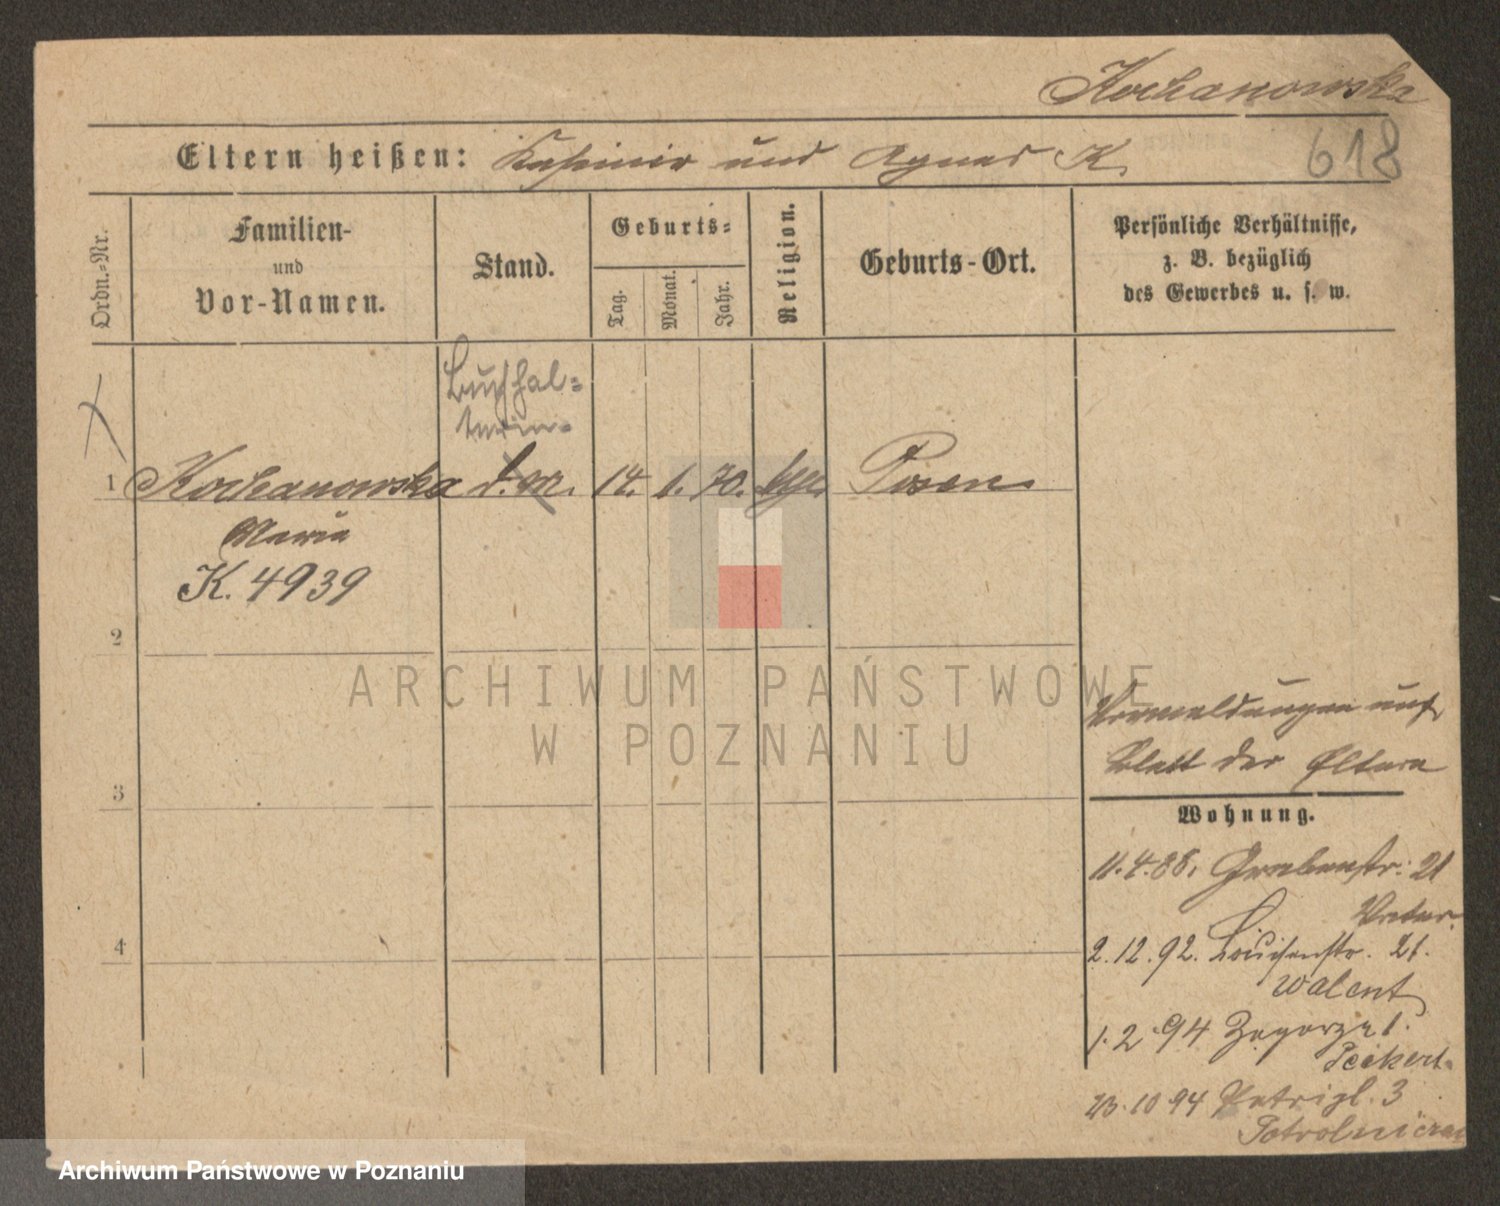 Kochanowska
618
Eltern heißen: Kasimir und Agnes K.
Ordn.-Nr.
Familien-
und
Vor-Namen.
Stand.
Geburts-
Tag.
Monat.
Jahr.
Religion.
Geburts-Ort.
Persönliche Verhältnisse,
z. B. bezüglich
des Gewerbes u. s. w.
Buchhal-
terin
1 Kochanowska 14. 1. 70. kath. Posen
Maria
K. 4939
2
3
4
Vormeldungen auf
Blatt der Eltern
Wohnung.
11.4.88. Grabenstr. 21
Vater
2.12.92. Louisenstr. 21.
Walent
1.2.94 Zagorze 1.
Peikert
10.94 Petripl. 3
ARCHIWUM PAŃSTWOWE
W POZNANIU
Archiwum Państwowe w Poznaniu